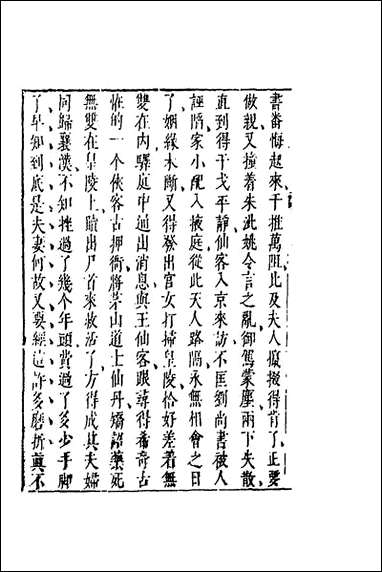 書番悔起來千推萬阻比及夫人攛掇得肯了正要
做親又撞着朱泚姚令言之亂御駕蒙塵兩下失散
直到得干戈平靜仙客入京來訪不匡劉尚書被人
誣陷家小配入掖庭從此天人路隔永無相會之日
了姻緣未斷又得發出宮女打掃皇陵恰好差着無
雙在內驛庭中通出消息與王仙客跟尋得希奇古
怪的一个俠客古押衙將茅山道士仙丹矯詔藥死
無雙在皇陵上贖出尸首來救活了方得成其夫婦
同歸襄漢不知挫過了幾个年頭費過了多少手脚
了早知到底是夫妻何故又要經這許多磨折真不